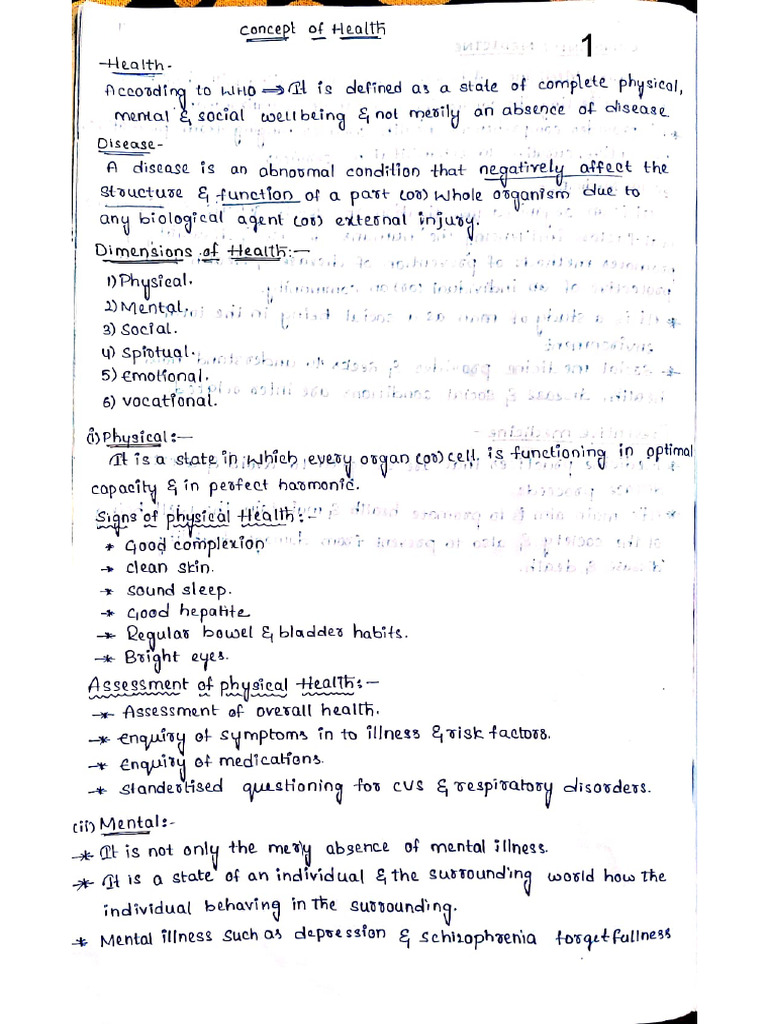 Concept of Health
1
Health-
According to WHO ⇒ It is defined as a state of complete physical,
mental & social wellbeing & not merily an absence of disease
Disease-
A disease is an abnormal condition that negatively affect the
structure & function of a part (or) whole organism due to
any biological agent (or) external injury.
Dimensions of Health:-
1) Physical.
2) Mental.
3) Social.
4) Spiotual.
5) Emotional.
6) Vocational.
(i) Physical:-
It is a state in which every organ (or) cell is functioning in optimal
capacity & in perfect harmonic.
Signs of physical Health:-
* Good complexion
* clean skin.
* sound sleep.
* Good hepatite
* Regular bowel & bladder habits.
* Bright eyes.
Assessment of physical Health:-
* Assessment of overall health.
* enquiry of symptoms in to illness & risk factors.
* enquiry of medications.
* standertised questioning for CVS & respiratory disorders.
(ii) Mental:-
* It is not only the mery absence of mental illness.
* It is a state of an individual & the surrounding world how the
individual behaving in the surrounding.
* Mental illness such as depression & schizophrenia forgetfullness